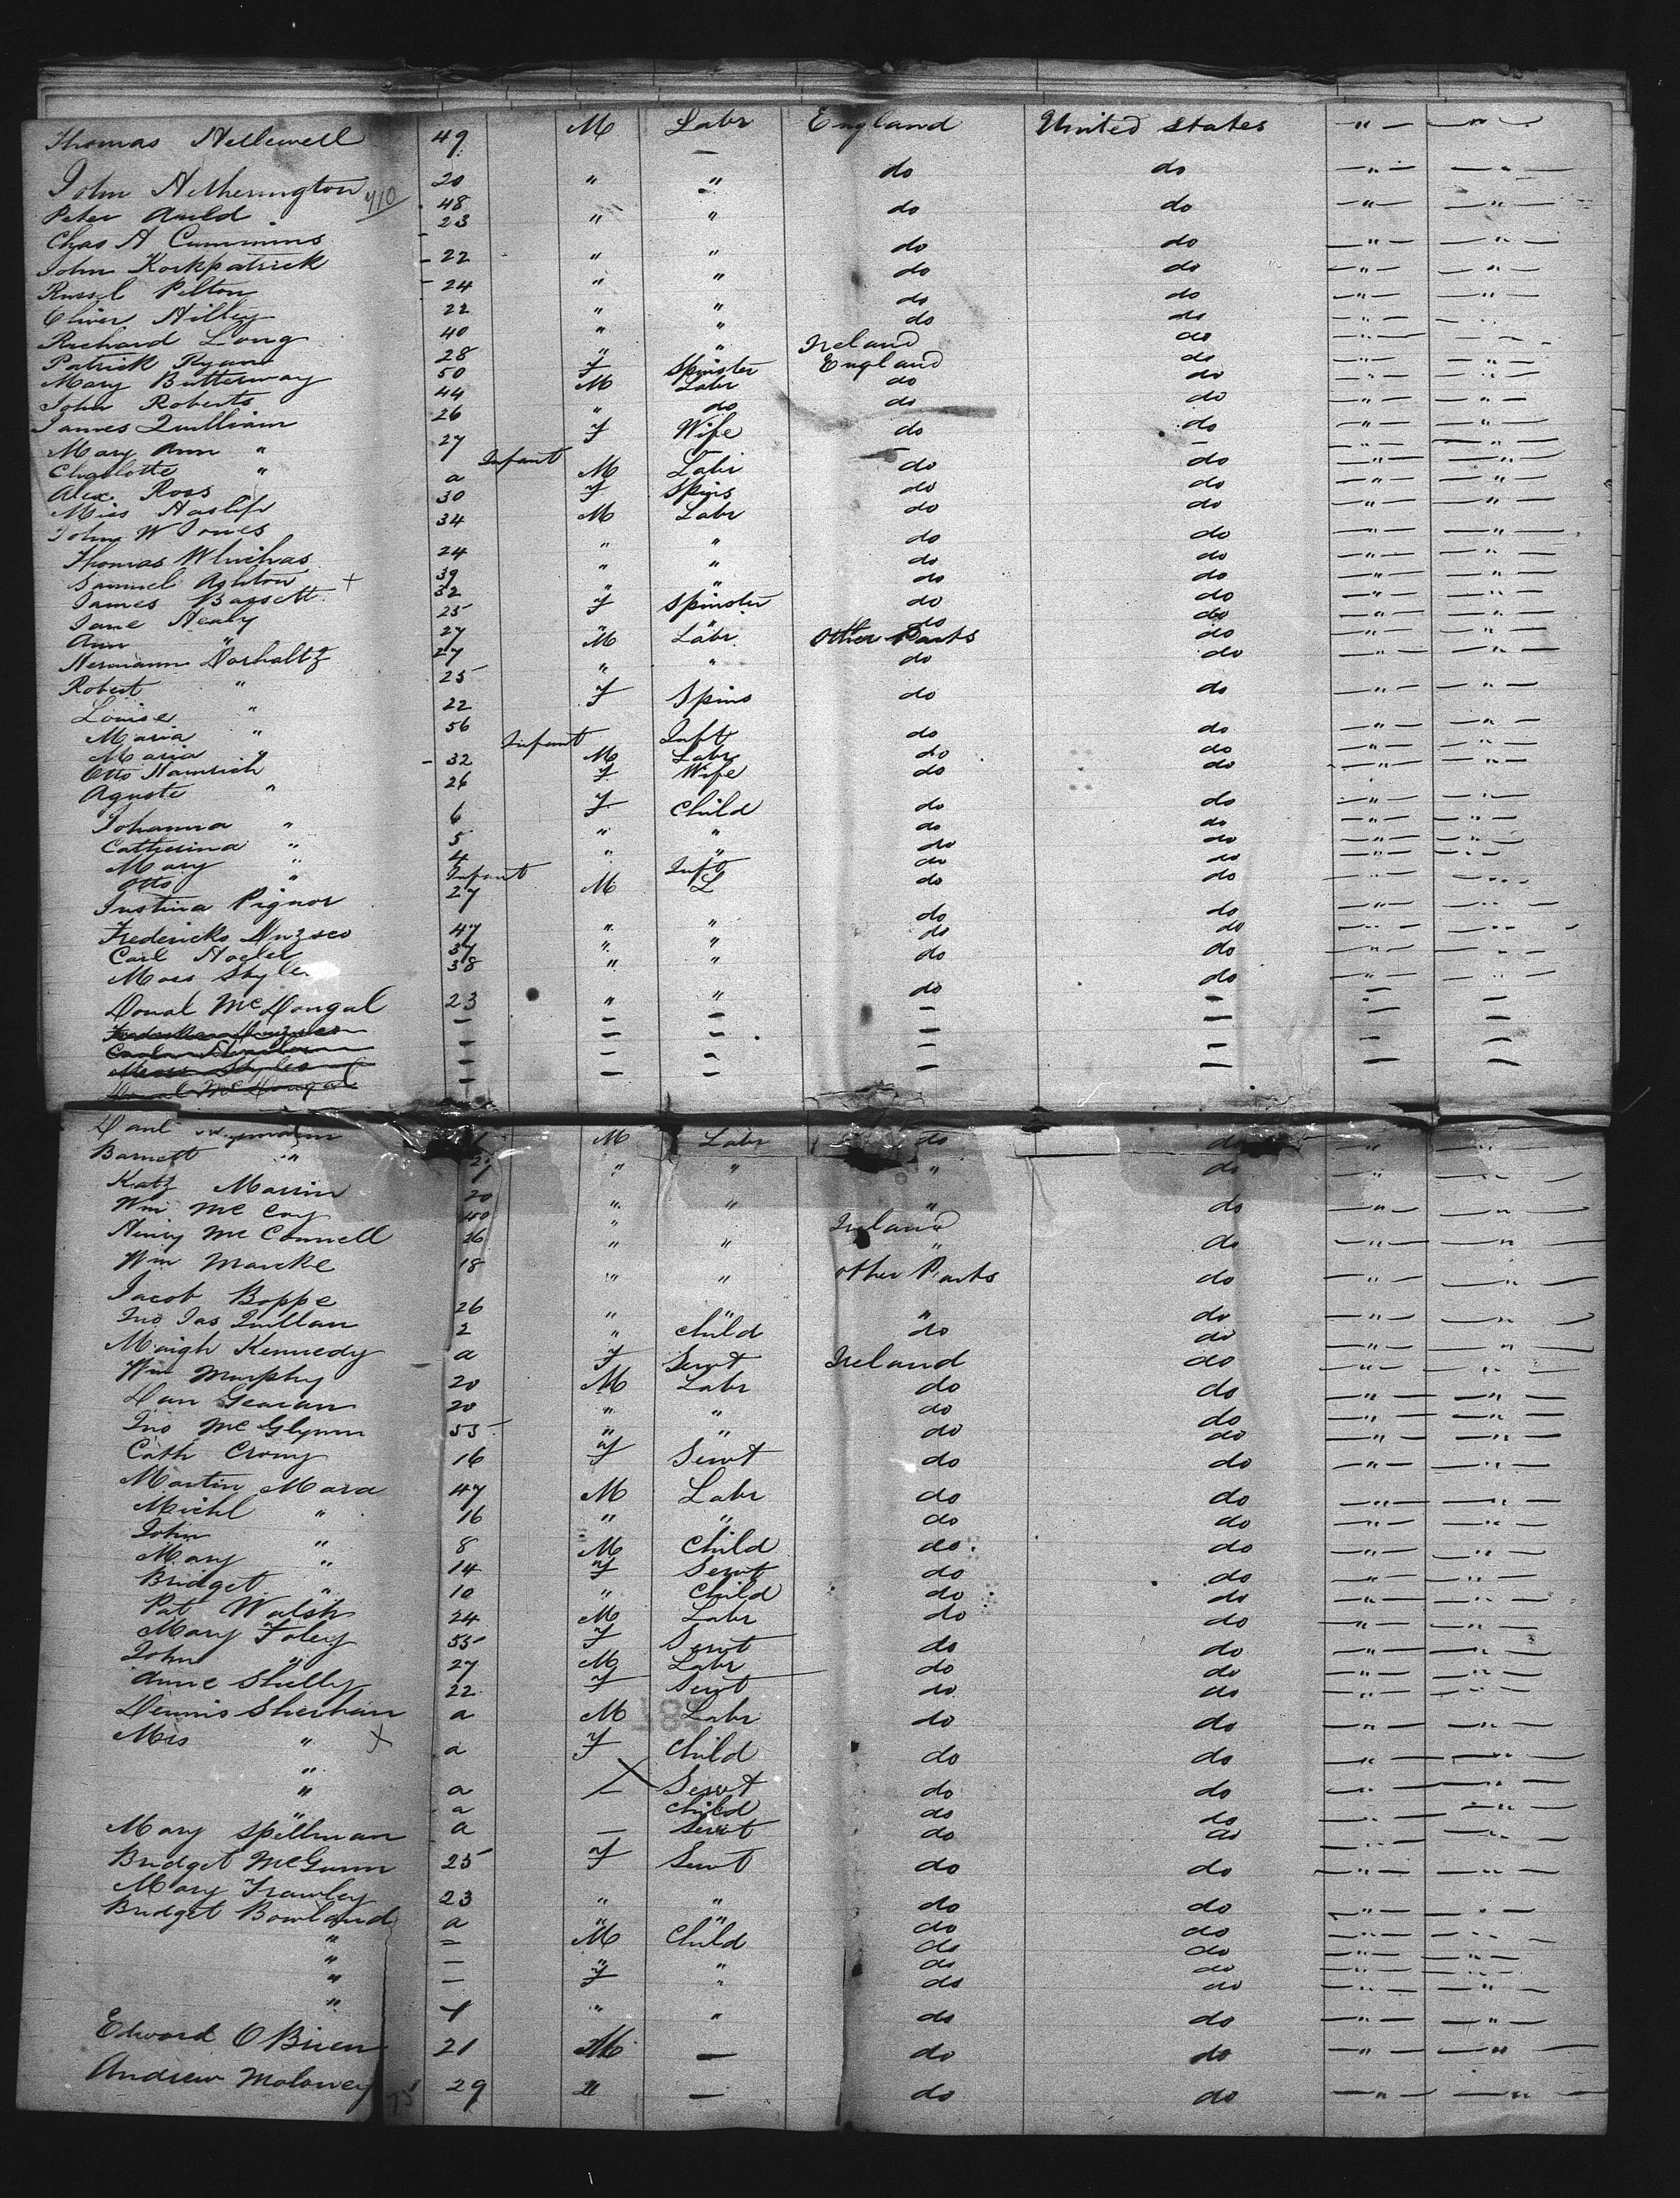 Thomas Hellewell 49 M Labr England United States " "
John Hetherington 410 20 " " do do " "
Peter Auld 48 " " do do " "
Chas A Cummins 23 " " do do " "
John Korkpatrick 22 " " do do " "
Russel Pelton 24 " " do do " "
Oliver Hilley 22 " " do do " "
Richard Long 40 " " do do " "
Patrick Ryan 28 " " Ireland do " "
Mary Butterway 50 F Spinster England do " "
John Roberts 44 M Labr do do " "
James Quilliam 26 " do do do " "
Mary Ann " 27 F Wife do do " "
Charlotte " Infant
Alex Ross a M Labr do do " "
Miss Haslip 30 F Spins do do " "
John W Jones 34 M Labr do do " "
Thomas 24 " " do do " "
Samuel Ashton 39 " " do do " "
James Bassett + 32 " " do do " "
Jane Healy 25 F Spinster do do " "
Ann " 27 " " do do " "
Hermann Dorholtz 27 M Labr Other Parts do " "
Robert " 25 " " do do " "
Louise " 22 F Spins do do " "
Maria " 56
Maria " Infant Inft do do " "
Otto Hamrich 32 M Labr do do " "
Aguste " 26 F Wife do do " "
Johanna " 6 F Child do do " "
Catherina " 5 " " do do " "
Mary " 4 " " do do " "
Otto " Infant Inft do do " "
Justina Pignor 27 M L do do " "
Fredericks 47 " " do do " "
Carl 37 " " do do " "
Moss Styler 38 " " do do " "
Donal McDougal 23 " " do do " "
Moss Styler
Donal McDougal
Danl M Labr do do " "
Barnett " " " " do " "
Katz Marrin 20 " " " do " "
Wm McCoy 40 " Ireland
Henry McConnell 26 " " " do " "
Wm Marcke 18 " " other Parts do " "
Jacob Boppe 26 " " " do " "
Jno Jas Quillan 2 " Child do do " "
Maigh Kennedy a F Servt Ireland do " "
Wm Murphy 20 M Labr do do " "
Dan Gearan 20 " " do do " "
Jno McGlynn 55 " " do do " "
Cath Crony 16 F Servt do do " "
Martin Mara 47 M Labr do do " "
Michl " 16 " " do do " "
John " 8 M Child do do " "
Mary " 14 F Servt do do " "
Bridget " 10 " Child do do " "
Pat Walsh 24 M Labr do do " "
Mary Foley 55 F Servt do do " "
John " 27 M Labr do do " "
Anne Shelly 22 F Servt do do " "
Dennis Sheehan a M Labr do do " "
Mrs " + a F Child do do " "
" Servt
" a do do " "
" a Child do do " "
Mary Spellman a Servt do do " "
Bridget McGunn 25 F Servt do do " "
Mary Frawley 23 " " do do " "
Bridget Bowland a " " do do " "
" M Child do do " "
" " do do " "
" F " do do " "
" 1 " " do do " "
Edward O'Brien 21 M do do " "
Andrew Moloney 75 29 " do do " "